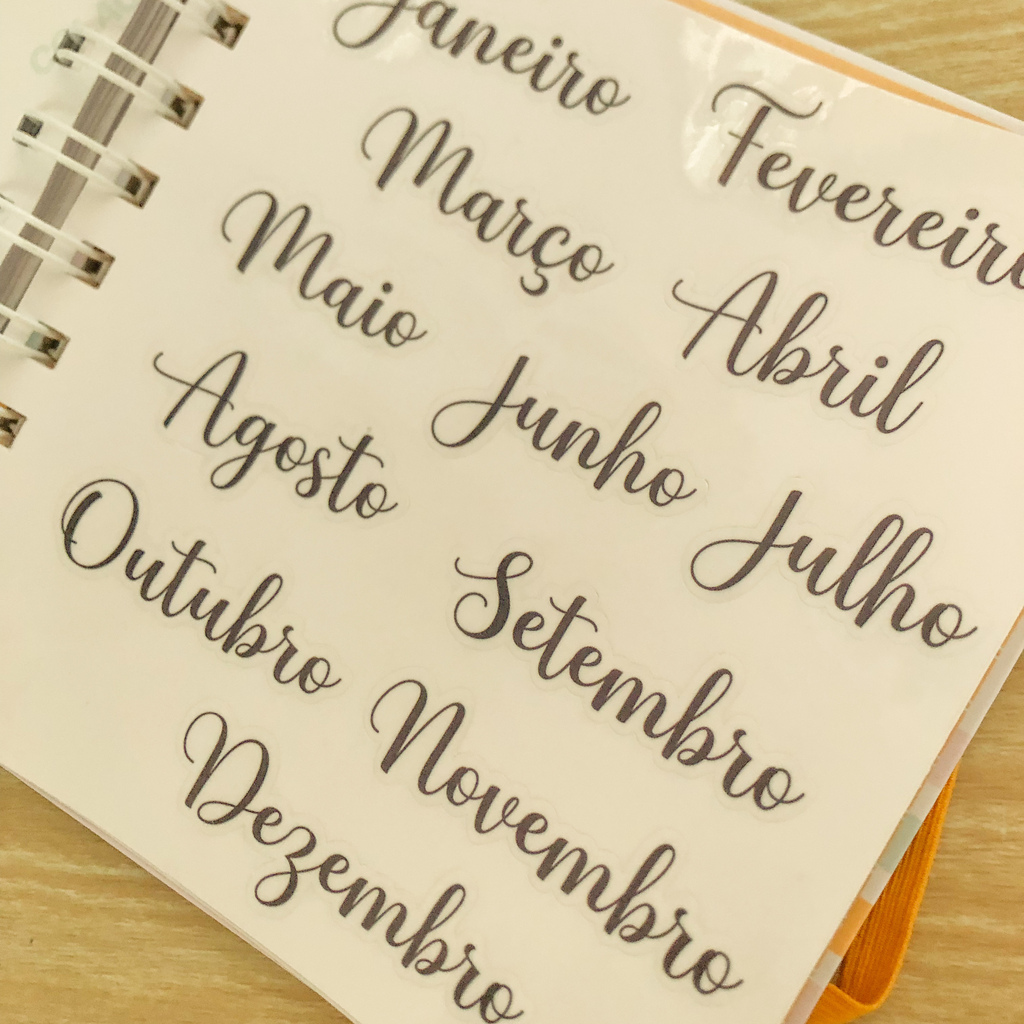 Janeiro
Fevereiro
Março
Abril
Maio
Junho
Julho
Agosto
Setembro
Outubro
Novembro
Dezembro